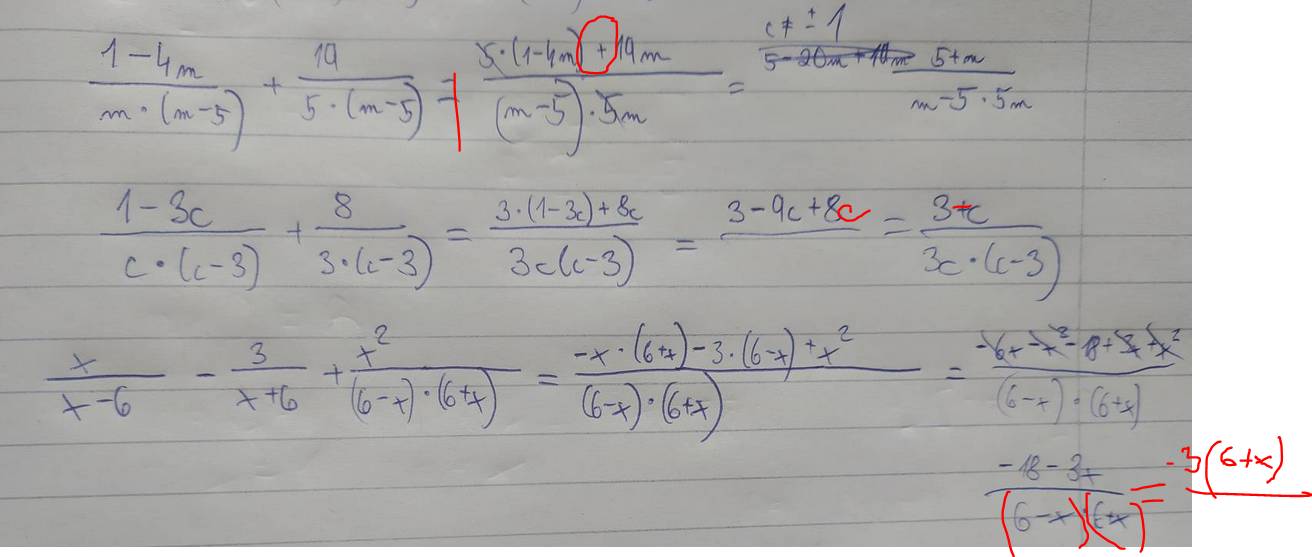 c ≠ ± 1
(1-4m)/(m·(m-5)) + 19/(5·(m-5)) = (5·(1-4m)+19m)/((m-5)·5m) = (5+m)/(m-5·5m)
(1-3c)/(c·(c-3)) + 8/(3·(c-3)) = (3·(1-3c)+8c)/(3c(c-3)) = 3-9c+8c = (3-c)/(3c·(c-3))
x/(x-6) - 3/(x+6) + x²/((6-x)·(6+x)) = (-x·(6+x)-3·(6-x)+x²)/((6-x)·(6+x)) = (-6x-x²-18+3x+x²)/((6-x)·(6+x))
(-18-3x)/((6-x)(6+x)) = -3(6+x)